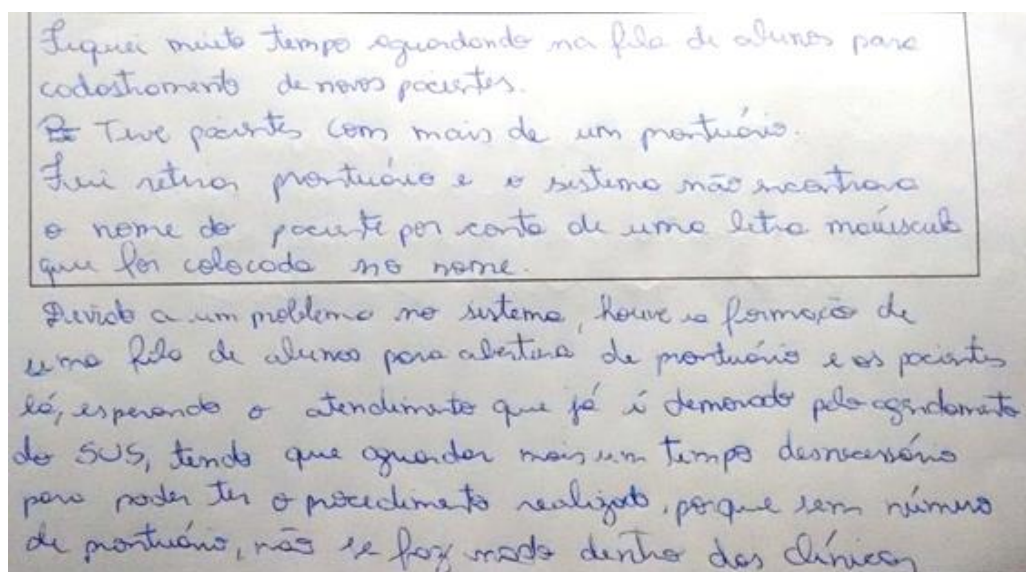 Fiquei muito tempo aguardando na fila de alunos para
cadastramento de novos pacientes.
Tive pacientes com mais de um prontuário.
Fui retirar prontuário e o sistema não encontrava
o nome do paciente por conta de uma letra maiúscula
que foi colocada no nome.
Devido a um problema no sistema, houve a formação de
uma fila de alunos para abertura de prontuário e os pacientes
lá, esperando o atendimento que já é demorado pelo agendamento
do SUS, tendo que aguardar mais um tempo desnecessário
para poder ter o procedimento realizado, porque sem número
de prontuário, não se faz nada dentro das clínicas